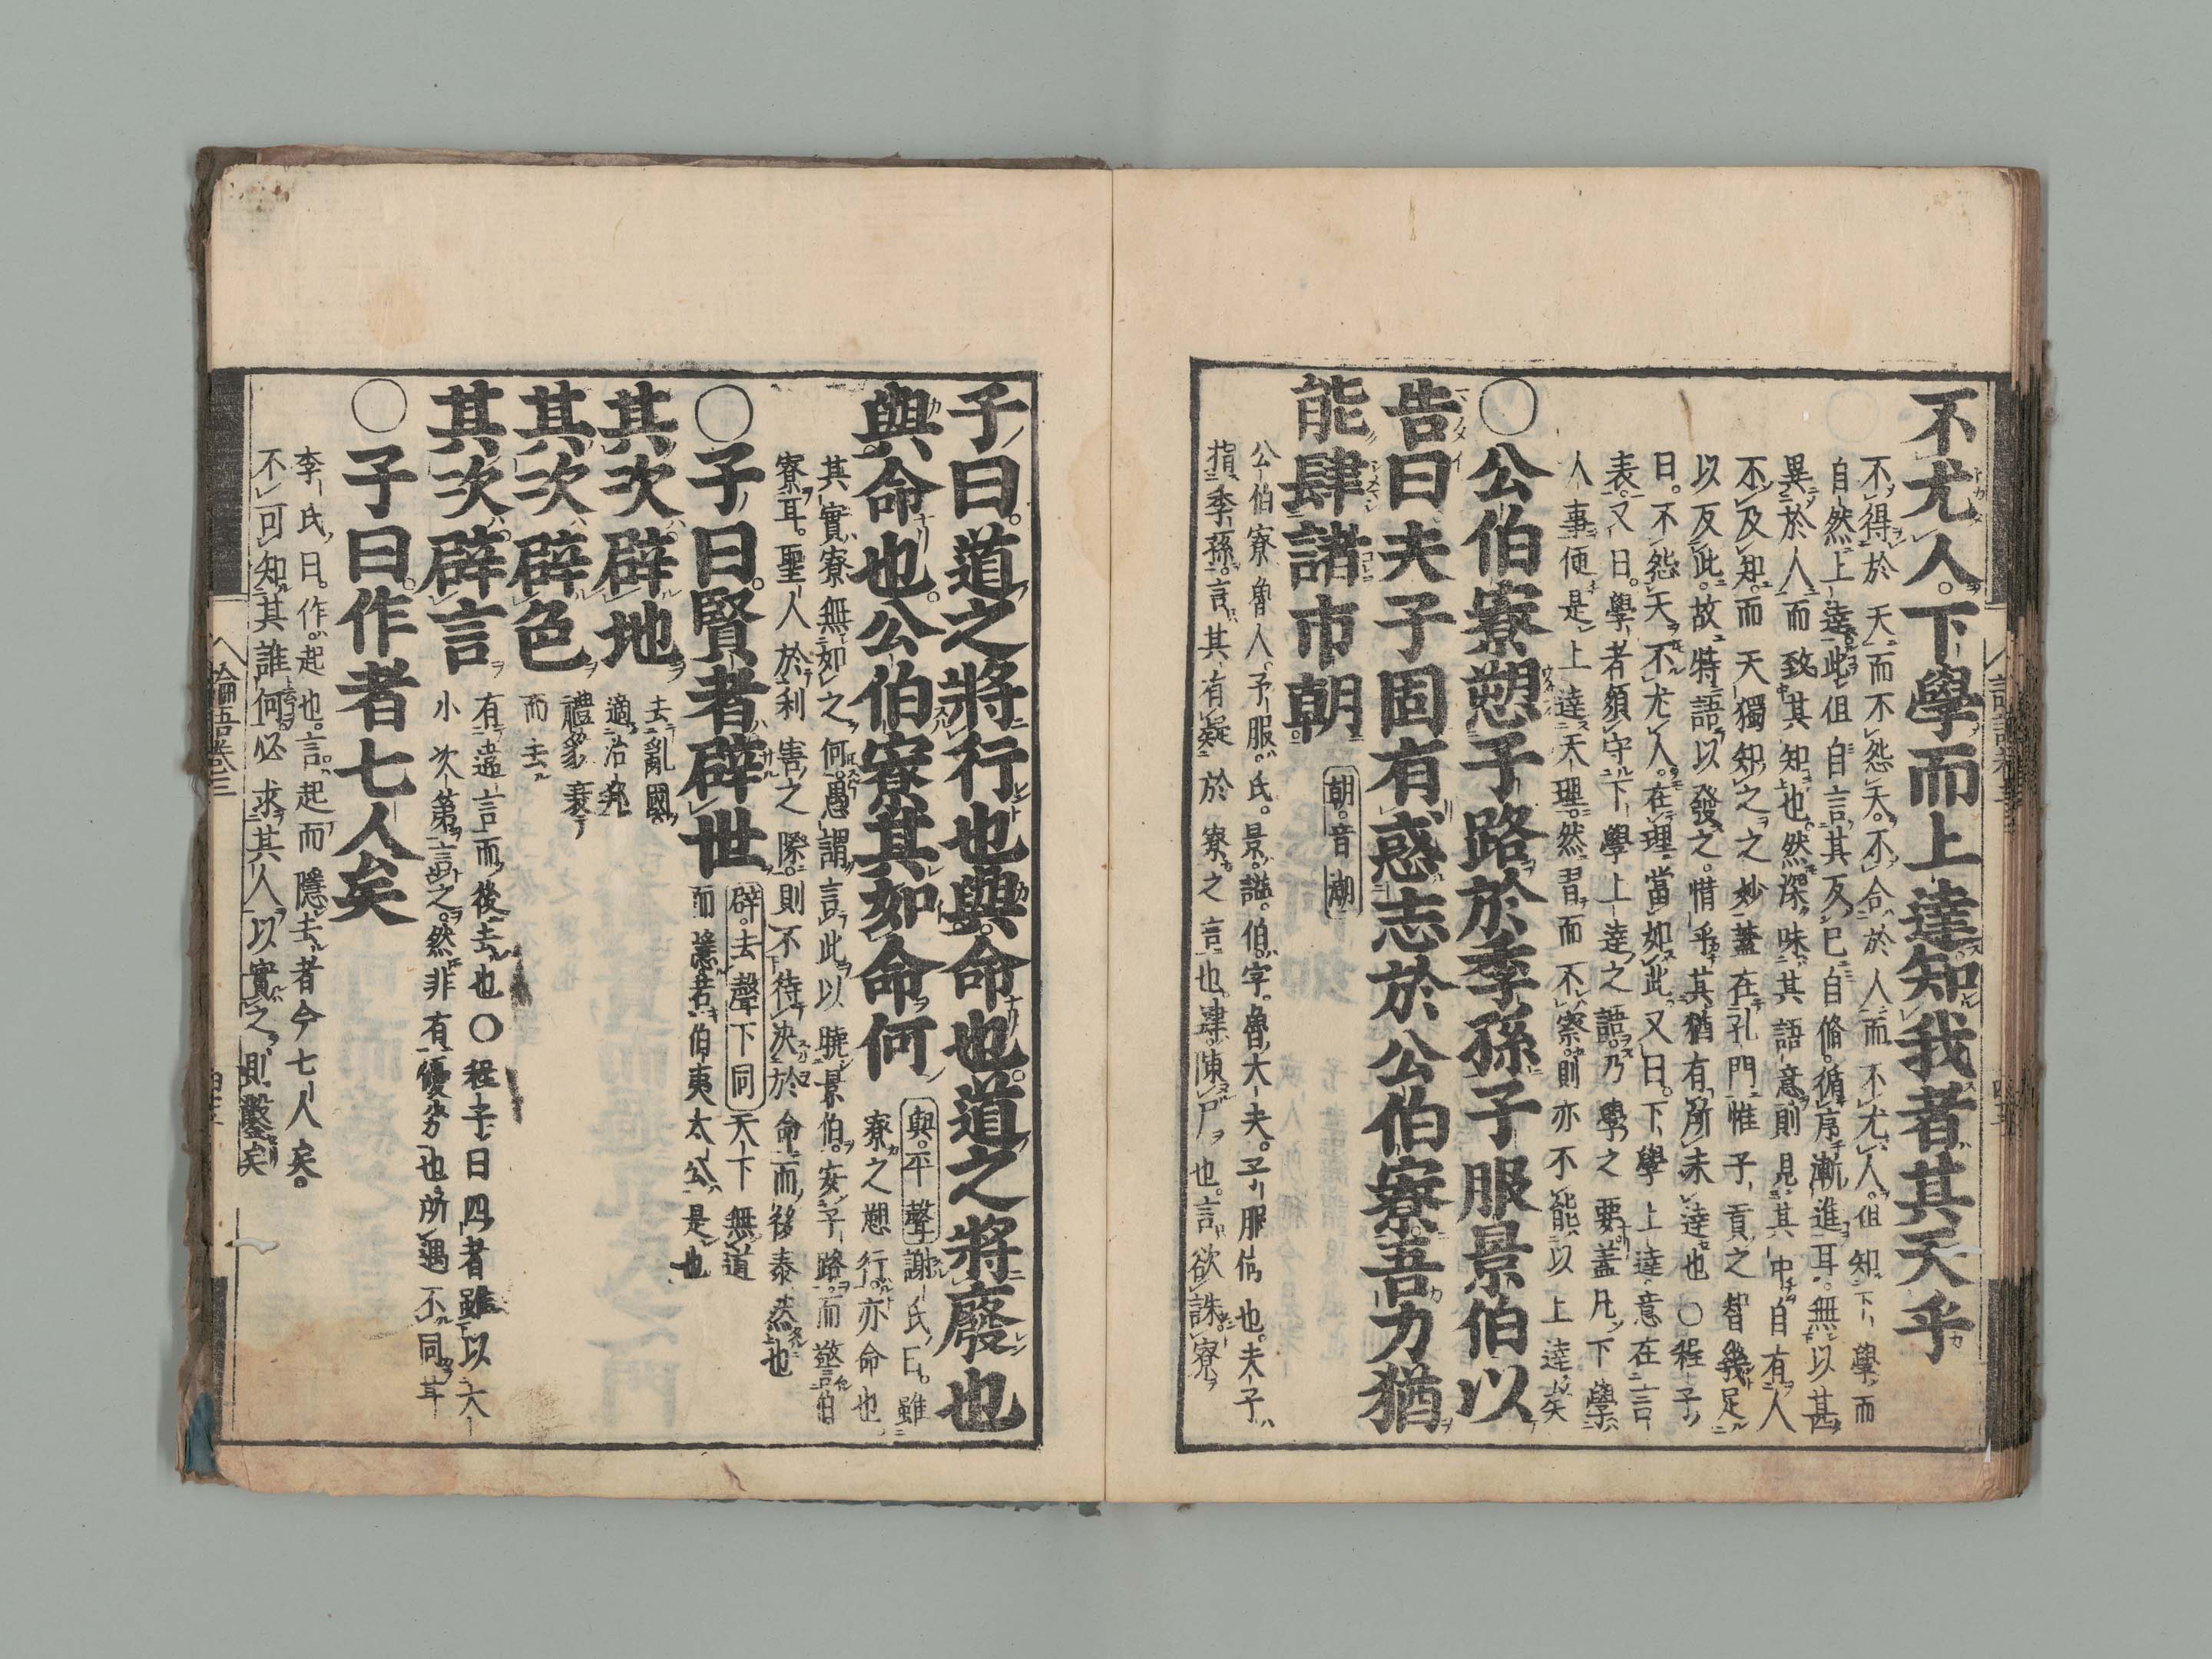 不尤人。下學而上達知我者其天乎
不得於天而不怨天。不合於人而不尤人。但知下學而
自然上達。此但自言其反已自脩。循序漸進耳。無以甚
異於人而致其知也。然深味其語意則見其中自有人
不及知。而天獨知之之妙。蓋在孔門惟子貢之智幾足
以及此。故特語以發之。惜乎其猶有所未達也〇程子
曰。不怨天不尤人。在理當如此。又曰。下學上達意在言
表。又曰。學者須守下學上達之語。乃學之要。蓋凡下學
人事便是上達天理。然習而不察。則亦不能以上達矣
〇公伯寮愬子路於季孫子服景伯以
告曰夫子固有惑志於公伯寮吾力猶
能肆諸市朝。朝。音潮
公伯寮魯人。子服。氏。景。謚。伯。字。魯大夫。子服何也。夫子。
指季孫。言其有疑於寮之言也。肆。陳尸也。言欲誅寮
子曰。道之將行也與。命也。道之將廢也
與。命也。公伯寮其如命何 與。平聲 謝氏曰。雖
寮之愬行。亦命也。
其實寮無如之何。愚謂言此以曉景伯。安子路。而警伯
寮耳。聖人於利害之際。則不待決於命而後泰然也
〇子曰。賢者辟世 辟。去聲下同 天下無道
而隱若伯夷太公是也
其次辟地 去亂國。
適治邦
其次辟色 禮貌衰
而去
其次辟言 有違言而後去也〇程子曰四者雖以大
小次第言之。然非有優劣也。所遇不同耳
〇子曰。作者七人矣
李氏曰。作。起也。言。起而隱去者今七人矣。
不可知其誰何。必求其人以實之。則鑿矣
論語卷三